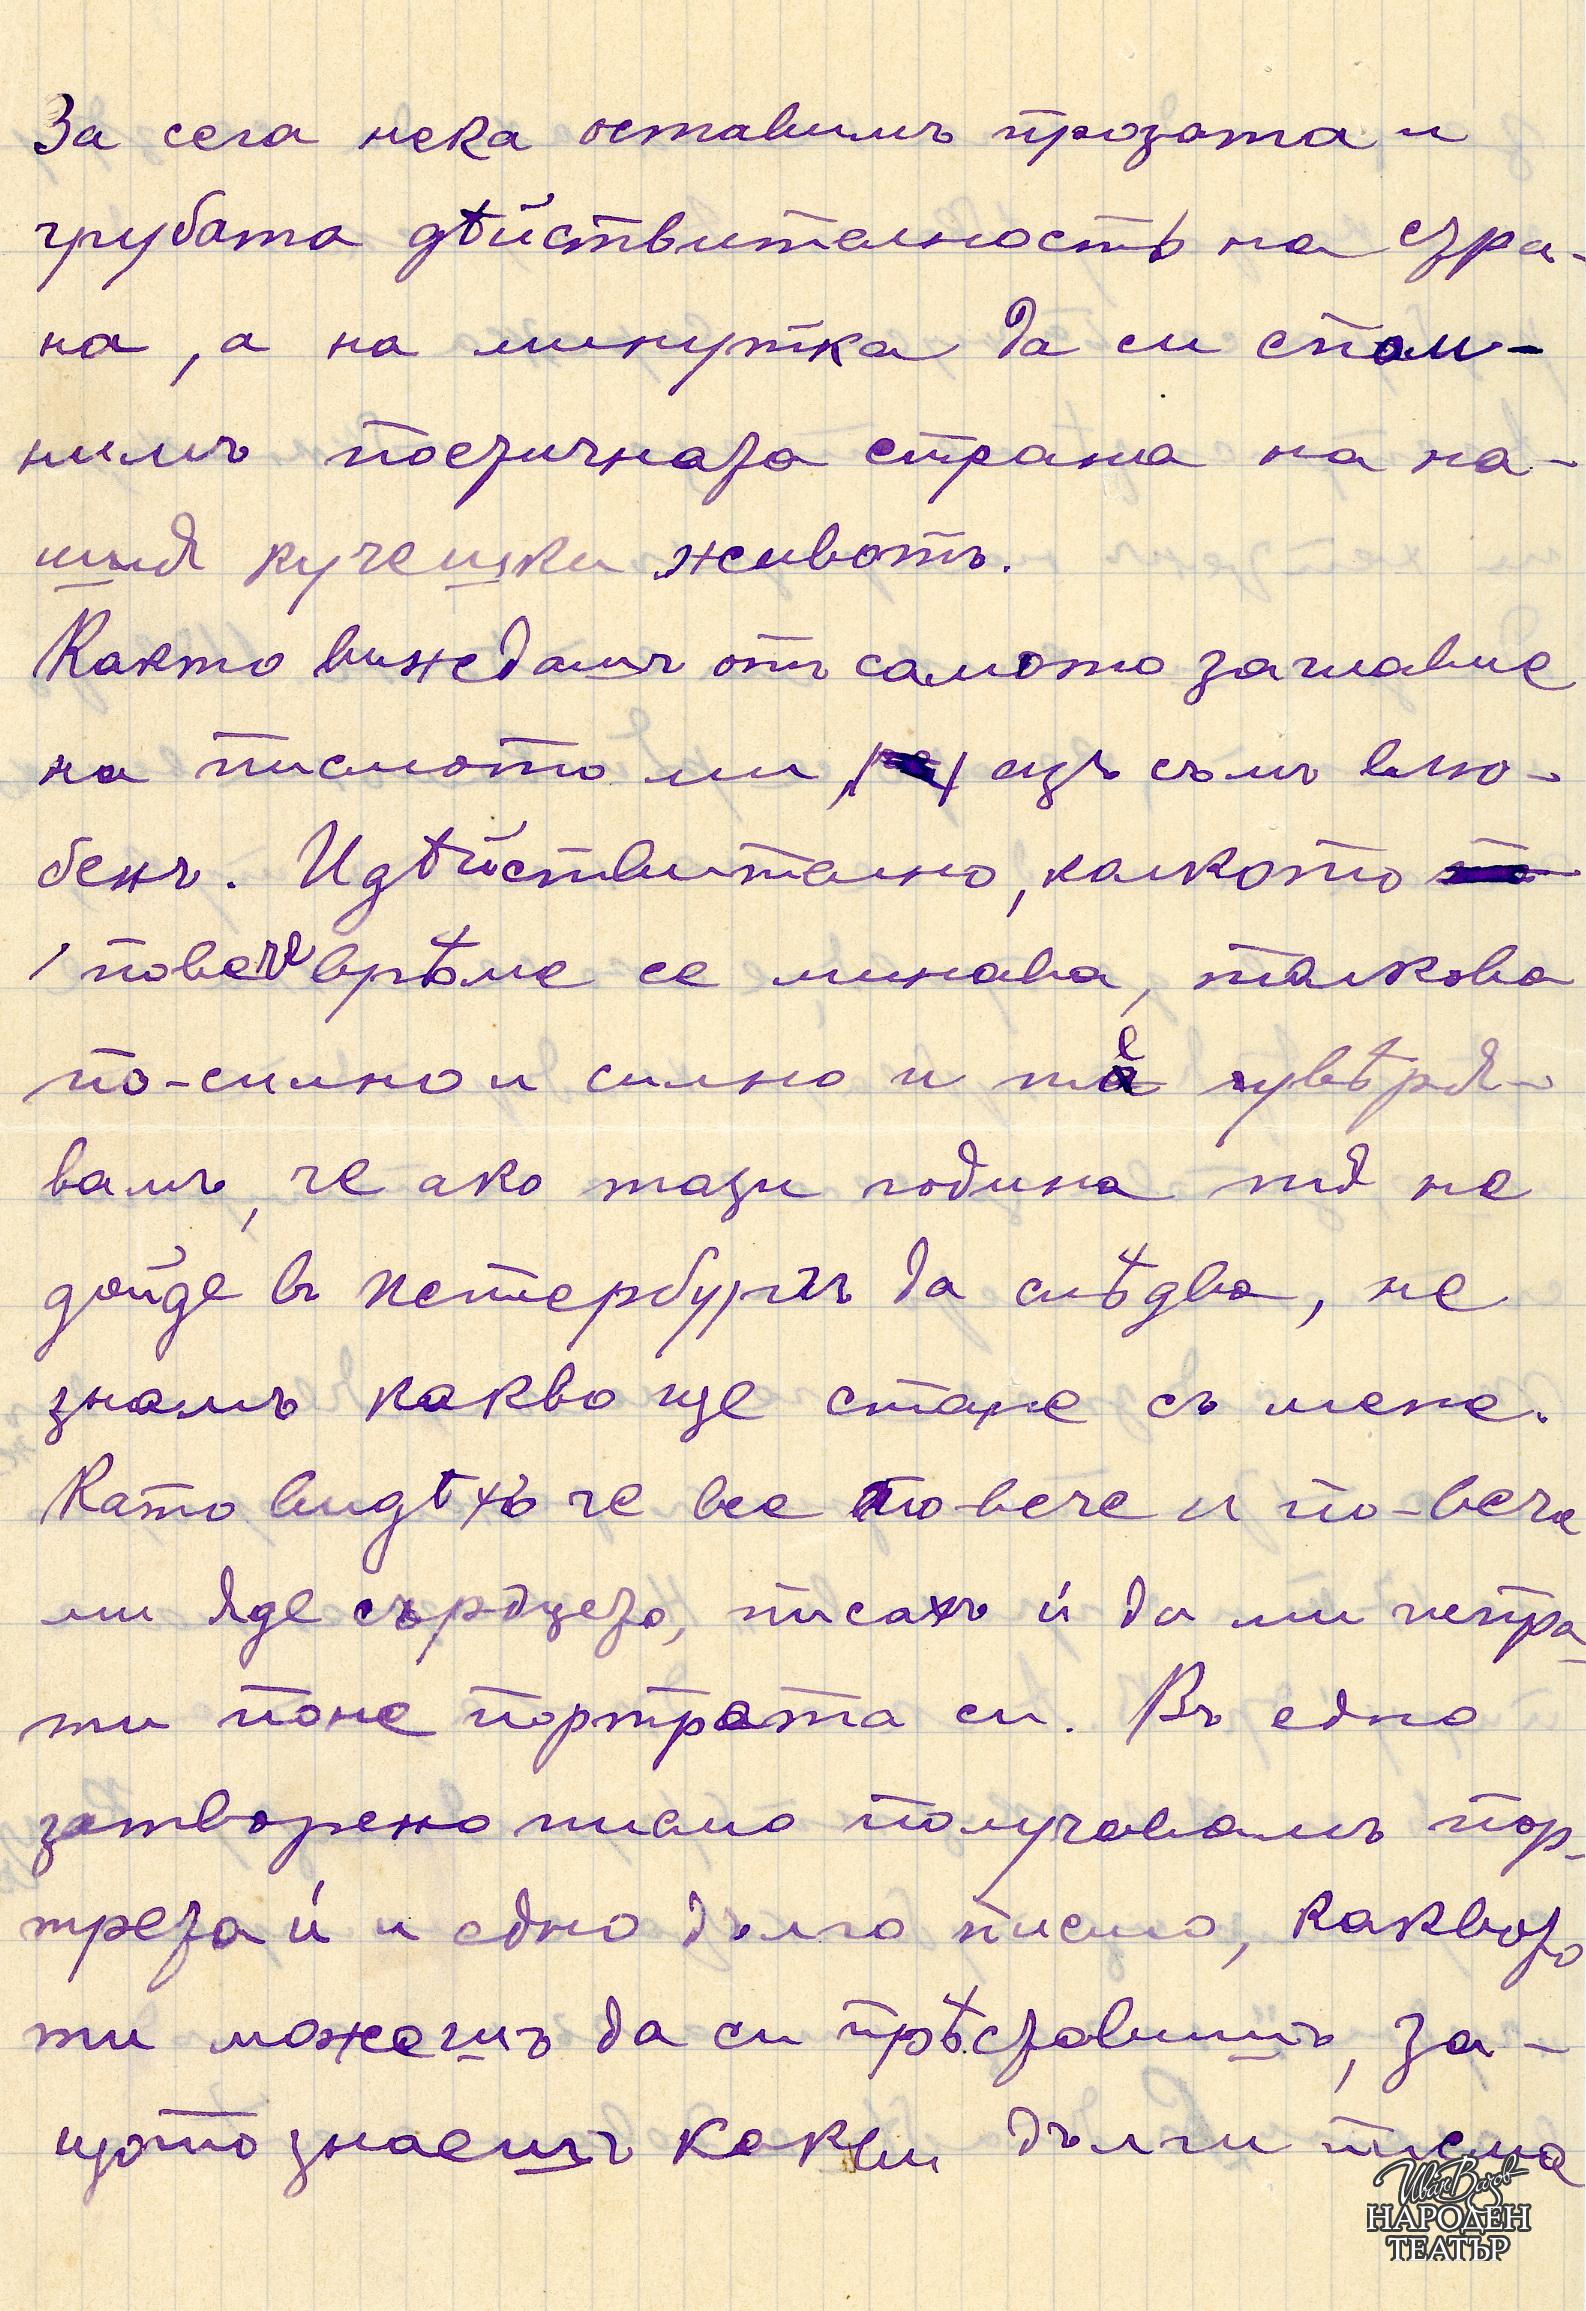 За сега нека оставимъ прозата и
грубата дѣйствителность на стра-
на, а на минутка да си спом-
нимъ поетичната страна на на-
шия кучешки животъ.
Както виждашъ отъ самото заглавие
на писмото ми, азъ съмъ влю-
бенъ. И дѣйствително, колкото
повече врѣме се минава, толкова
по-силно и силно и те увѣря-
вамъ, че ако тази година тя не
дойде въ Петербургъ да слѣдва, не
знамъ какво ще стане съ мене.
Като видѣхъ че все по-вече и по-вече
ми яде сърдцето, писахъ ѝ да ми испра-
ти поне портрета си. Въ едно
затворено писмо получавамъ пор-
трета ѝ и едно дълго писмо, каквото
ти можешъ да си прѣставишъ, за-
щото знаешъ какви дълги писма
Иван Вазов
НАРОДЕН
ТЕАТЪР